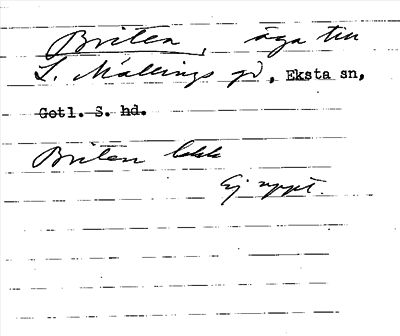 Briten, äga till
L. Mällings gd, Eksta sn,
Gotl. S. hd.
Briten
Ej uppt.